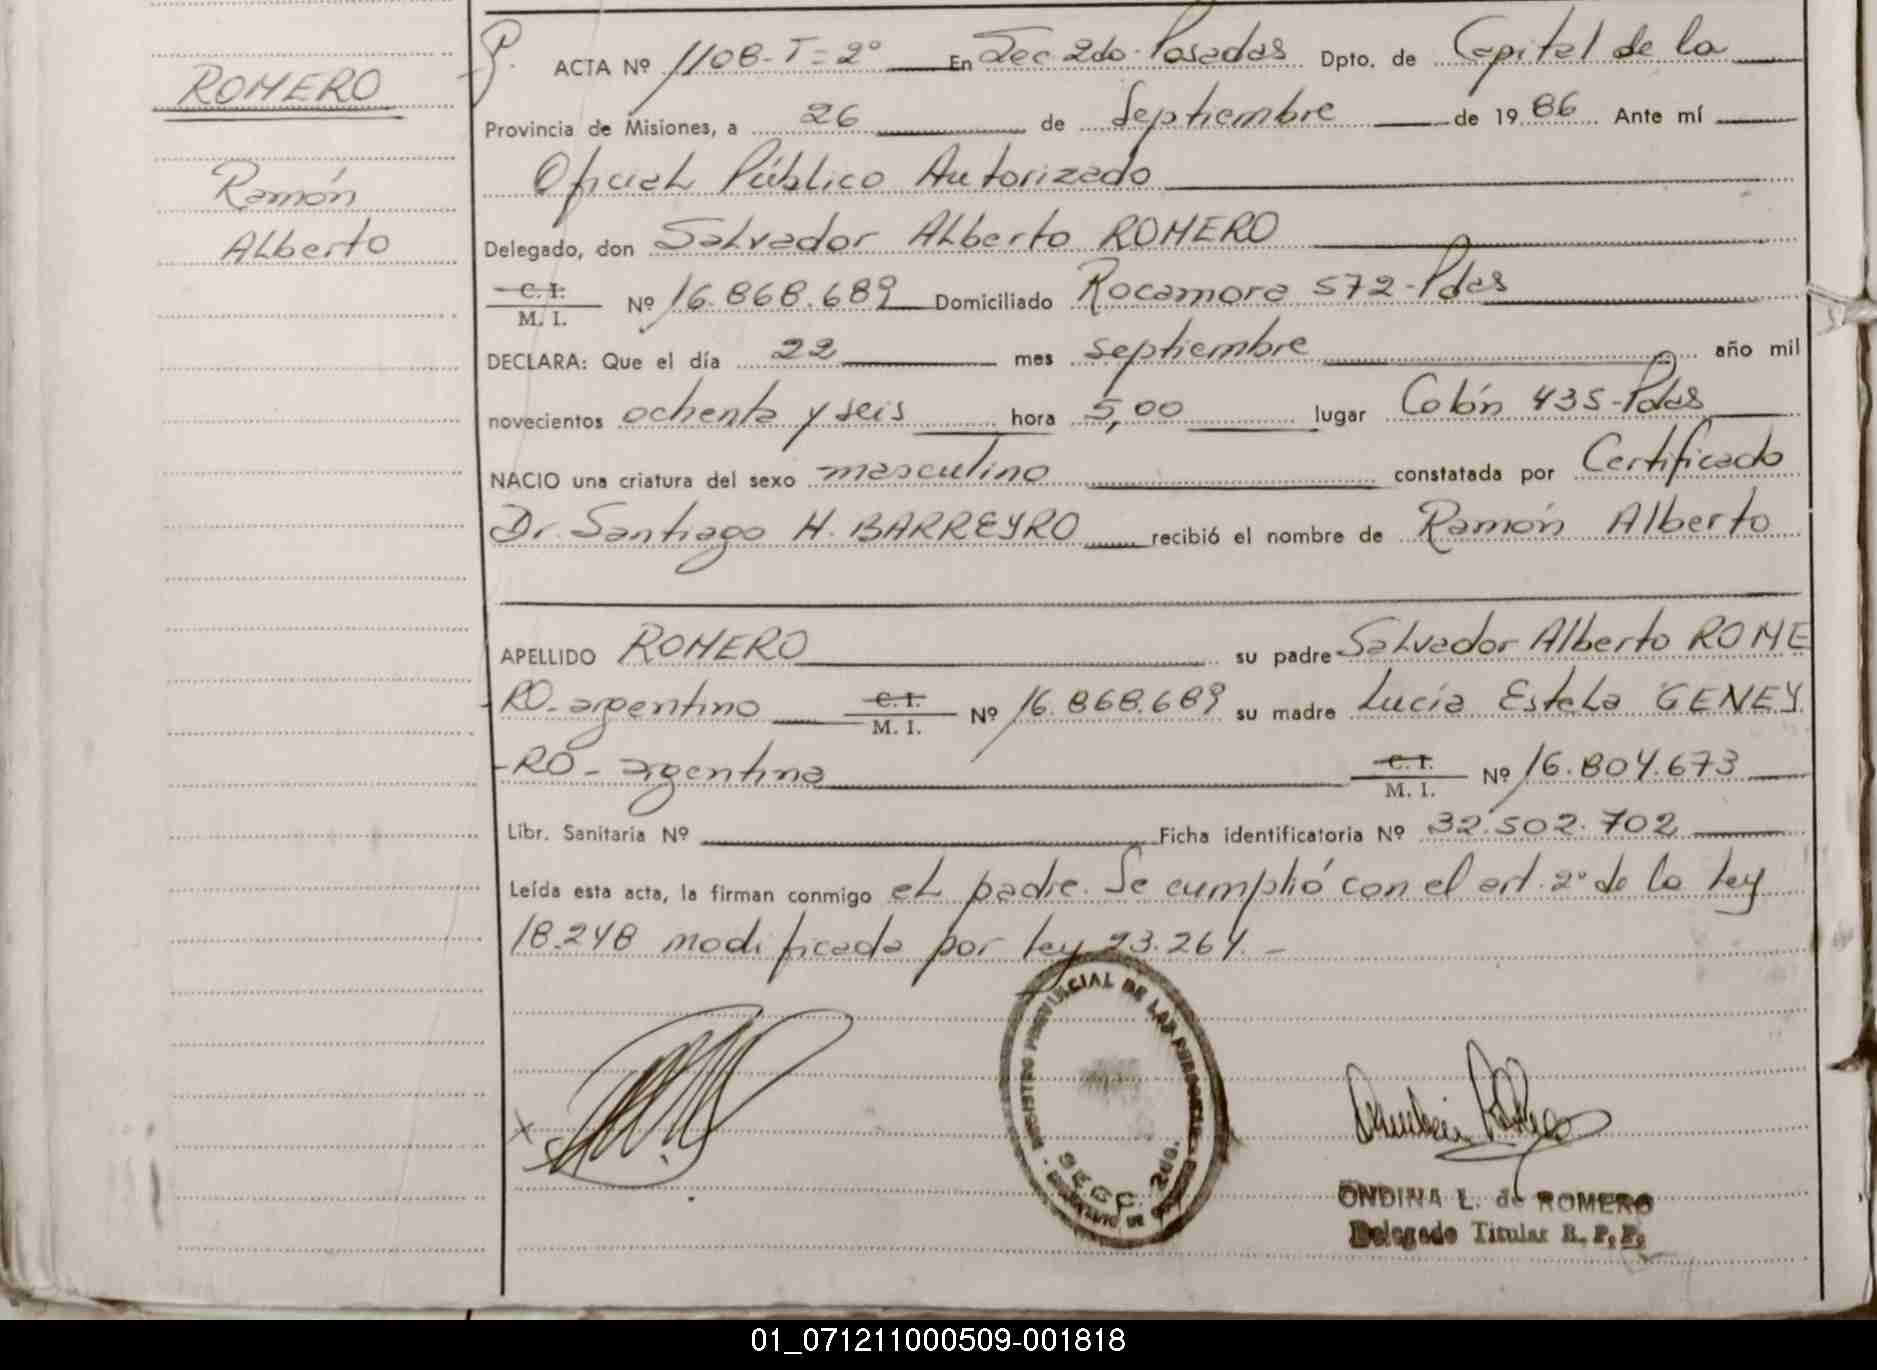 ROMERO
Ramón
Alberto
P. ACTA Nº 1108-T=2º En Sec 2do-Posadas Dpto. de Capital de la
Provincia de Misiones, a 26 de Septiembre de 1986 Ante mí
Oficial Público Autorizado
Delegado, don Salvador Alberto ROMERO
C. I. M. I. Nº 16.868.689 Domiciliado Rocamora 572-Pdas
DECLARA: Que el día 22 mes septiembre año mil
novecientos ochenta y seis hora 5,00 lugar Colón 435-Pdas
NACIO una criatura del sexo masculino constatada por Certificado
Dr. Santiago H. BARREYRO recibió el nombre de Ramón Alberto
APELLIDO ROMERO su padre Salvador Alberto ROME
RO-argentino C. I. M. I. Nº 16.868.689 su madre Lucía Estela GENEY
-RO-argentina C. I. M. I. Nº 16.804.673
Libr. Sanitaria Nº Ficha identificatoria Nº 32.502.702
Leída esta acta, la firman conmigo el padre. Se cumplió con el art. 2º de la Ley
18.248 modificada por Ley 23.264.-
REGISTRO PROVINCIAL DE LAS PERSONAS
SECC. 2da.
X
ONDINA L. de ROMERO
Delegado Titular R. P. P.
01_071211000509-001818